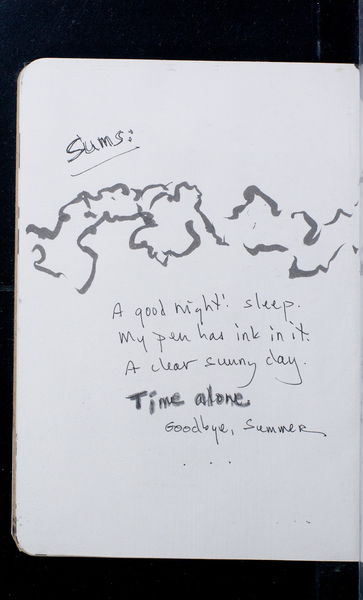 Sums:
A good night's sleep.
My pen has ink in it.
A clear sunny day.
Time alone.
Goodbye, Summer
. . .